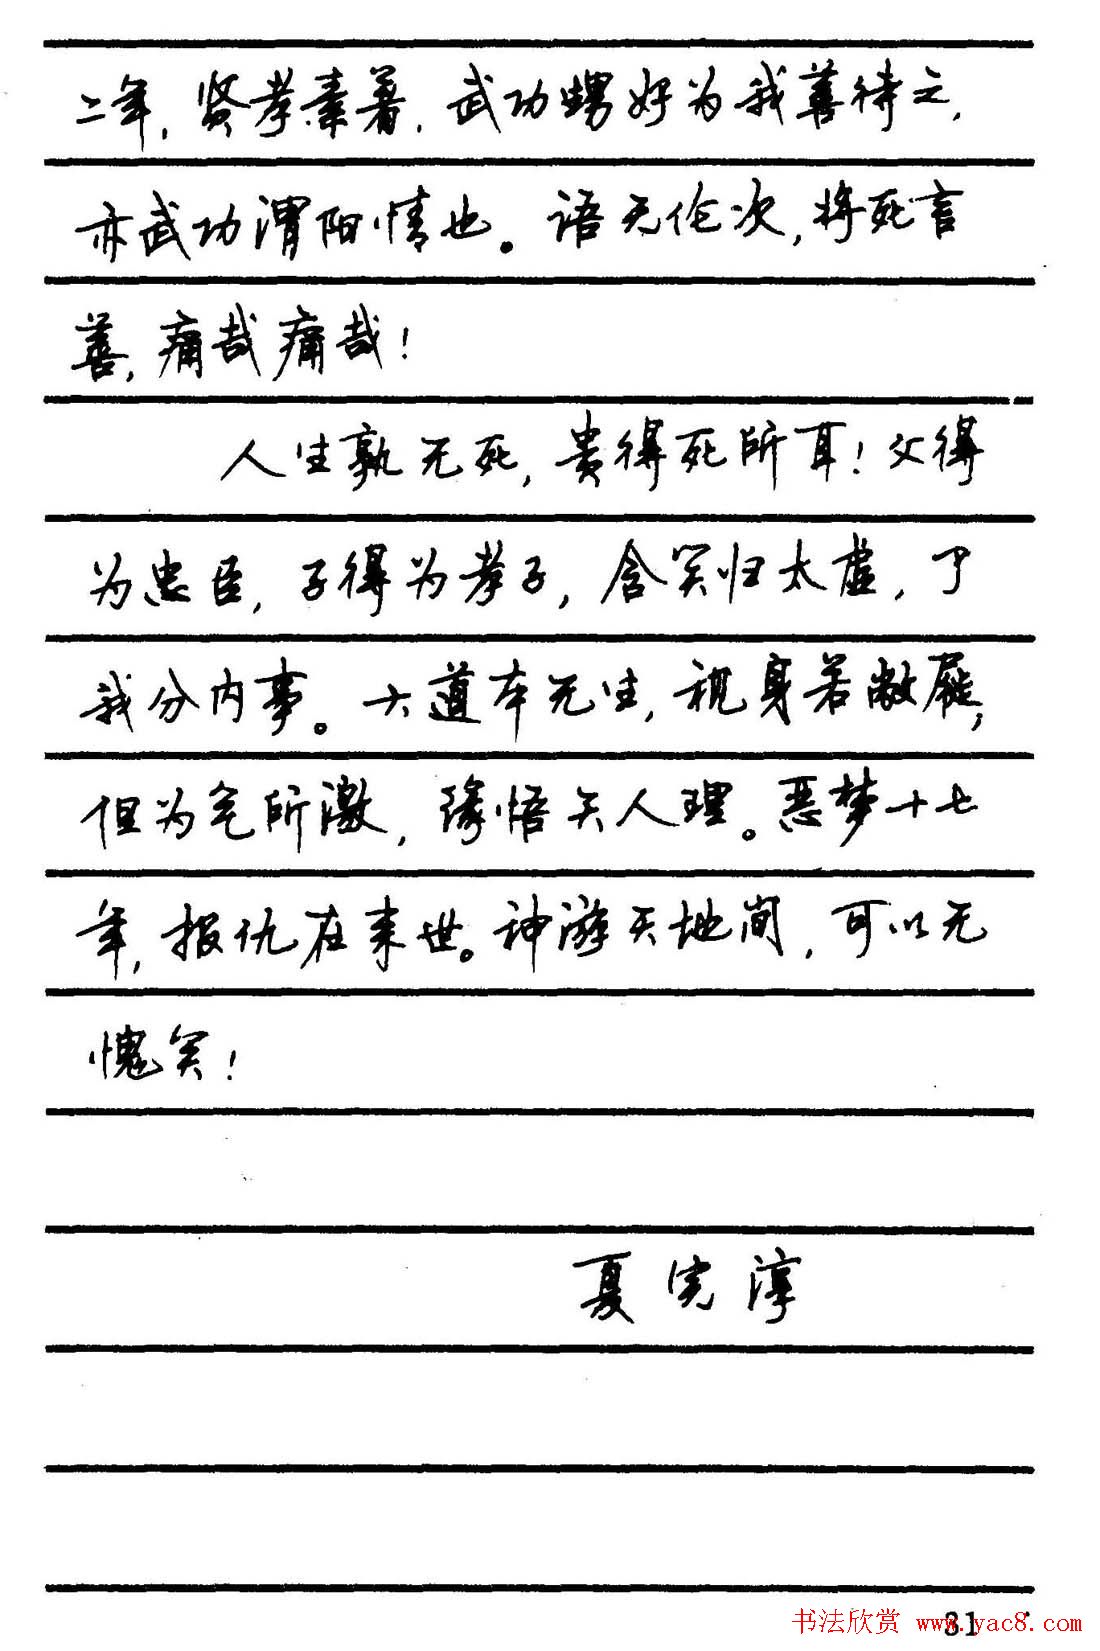 二年，贤孝素著，武功甥好为我善待之，
亦武功渭阳情也。语无伦次，将死言
善，痛哉痛哉！
人生孰无死，贵得死所耳！父得
为忠臣，子得为孝子，含笑归太虚，了
我分内事。大道本无生，视身若敝屣，
但为气所激，缘悟天人理。恶梦十七
年，报仇在来世。神游天地间，可以无
愧矣！
夏完淳
31
书法欣赏 www.yac8.com